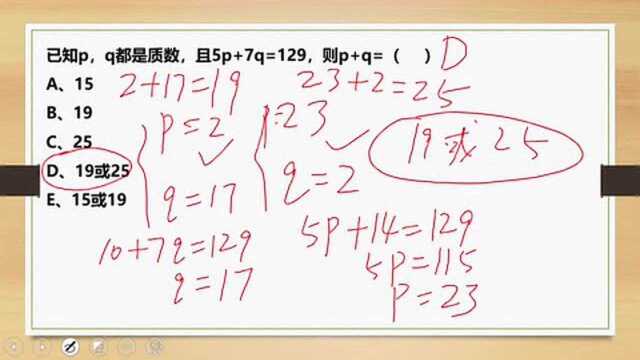 已知p，q都是质数，且5p+7q=129，则p+q=（ ） D
A、15
2+17=19
23+2=25
B、19
p=2
p=23
19或25
C、25
D、19或25
q=17
q=2
E、15或19
10+7q=129
5p+14=129
q=17
5p=115
p=23